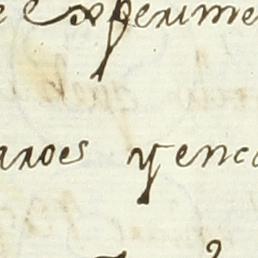 e Experime
aroes y enco